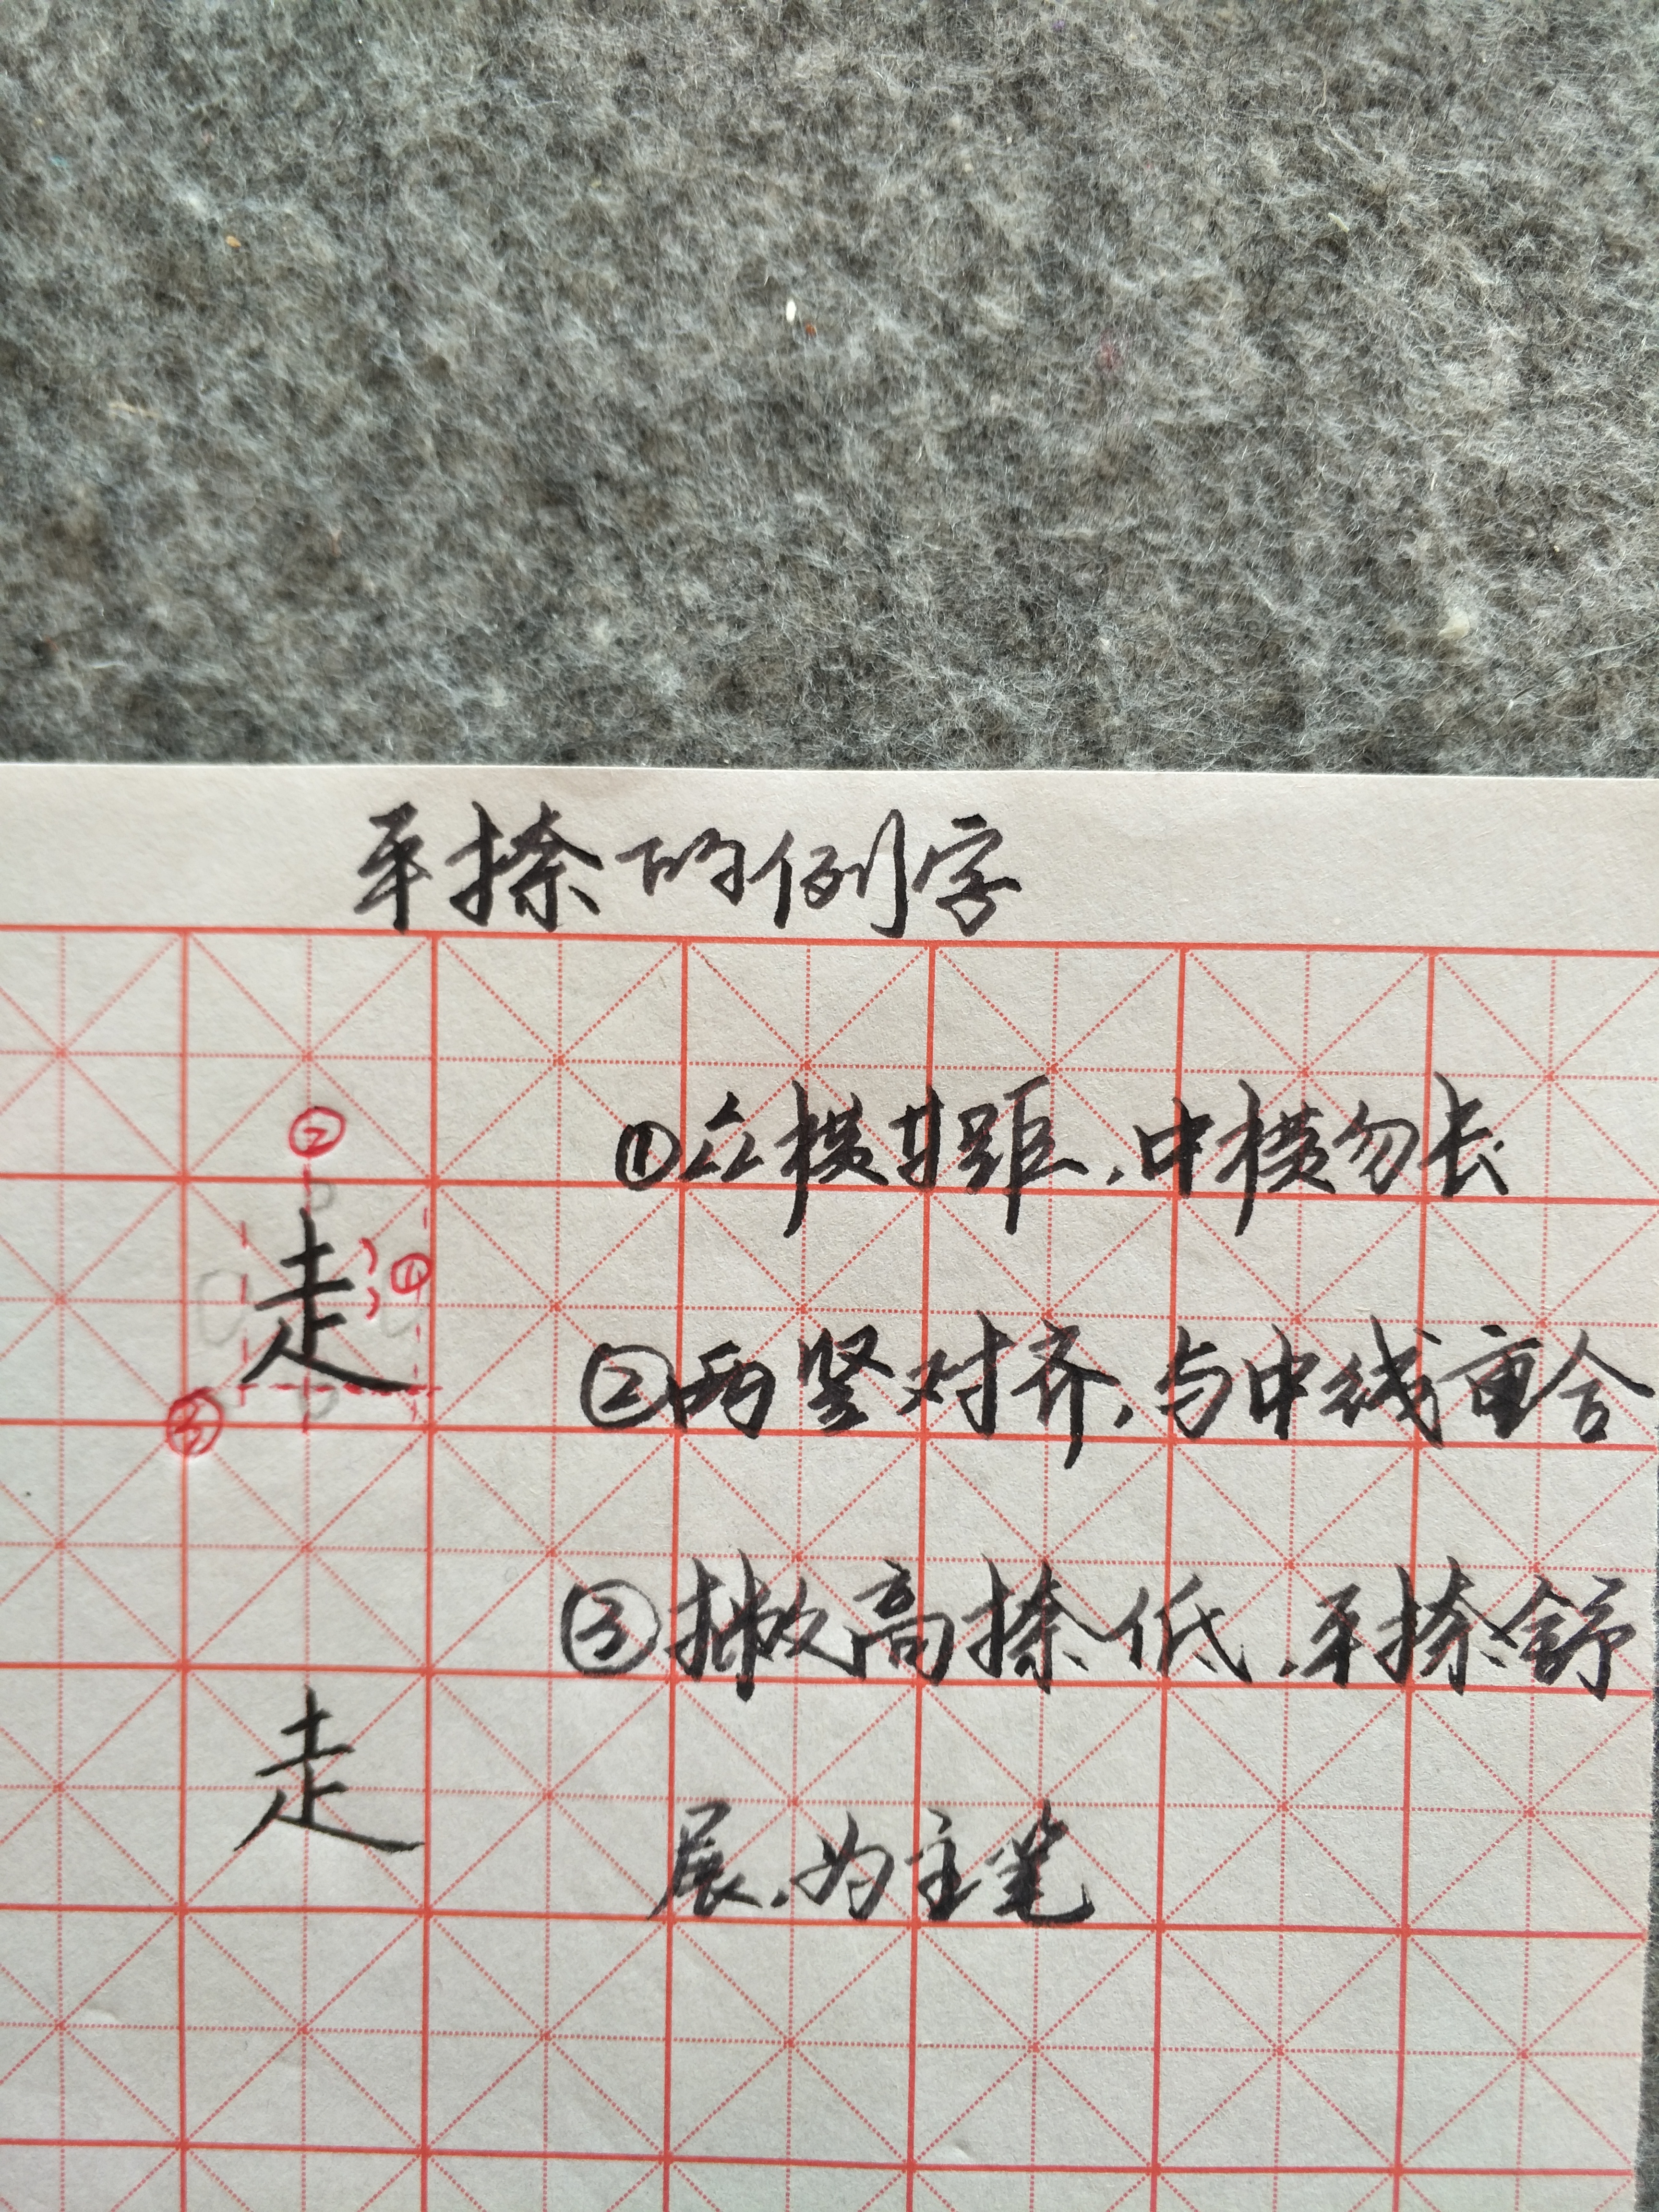 平捺的例字
②
①众横等距,中横勿长
走 ①
②两竖对齐,与中线重合
③
③撇高捺低,平捺舒
走
展,为主笔